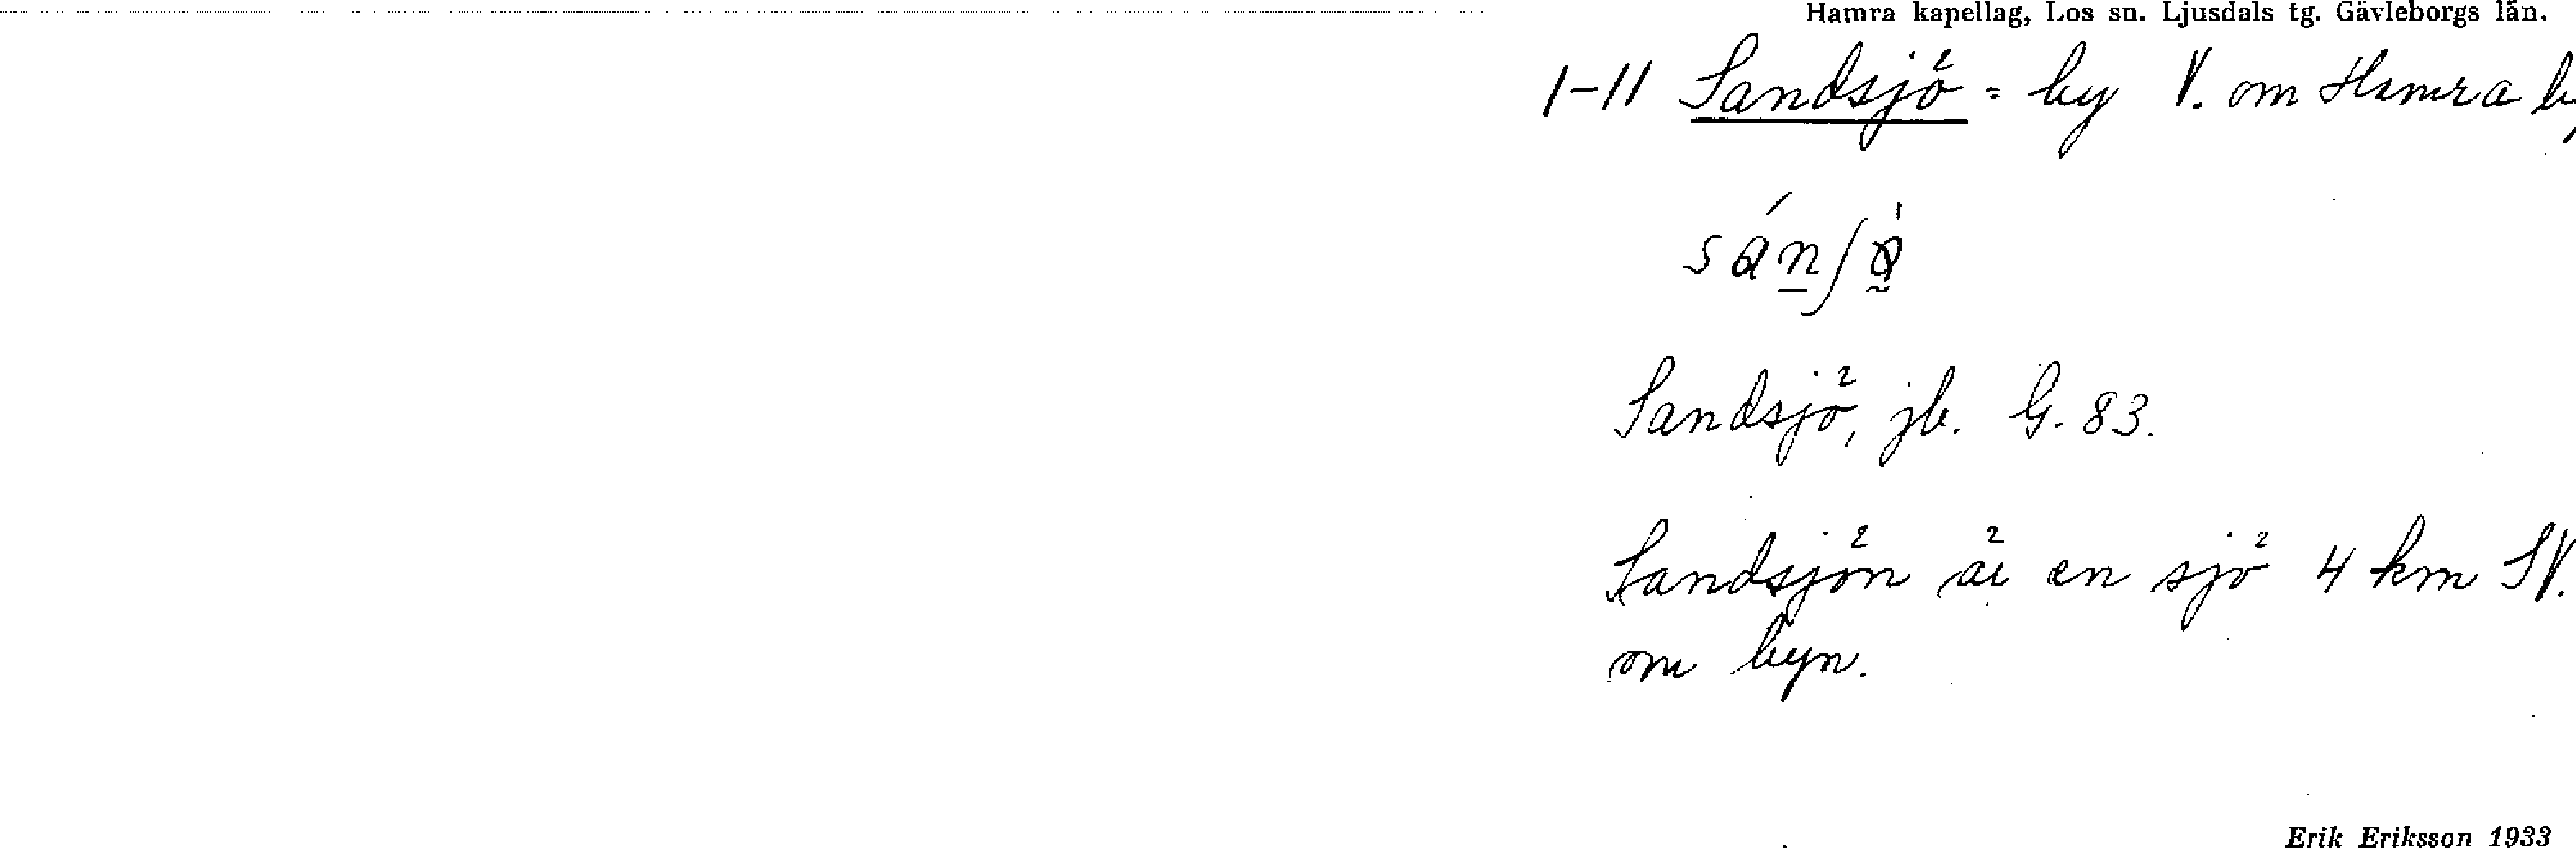 Hamra kapellag, Los sn. Ljusdals tg. Gävleborgs län.
1-11 Sandsjö = by V. om Hamra
Sandsjö, jb. G. 83.
Sandsjön är en sjö 4 km SV.
om byn.
Erik Eriksson 1933